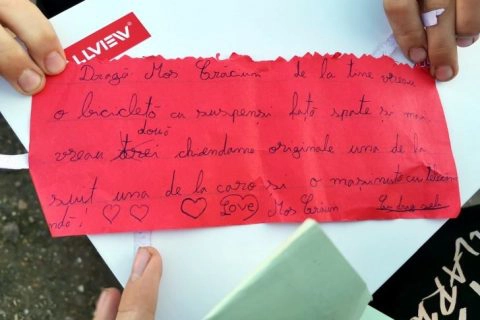 LLVIEW
Dragă Moș Crăciun de la tine vreau
o bicicletă cu suspensi față spate și mai
două
vreau trei chiendame originale una de la
suit una de la caro si o mașinuță cu telecoman
ndă! Love Moș Crăciun